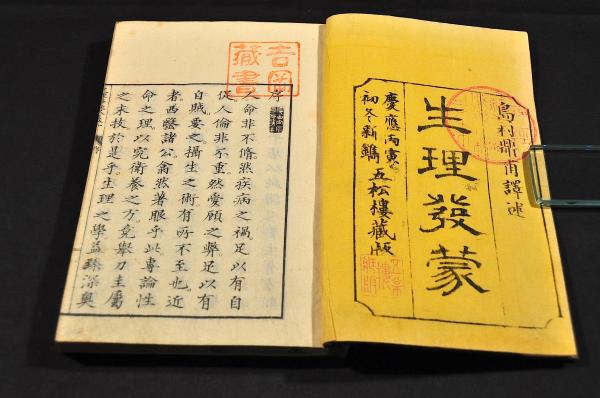 島村鼎甫譯述
生理發蒙
慶應丙寅
初冬新鐫
五松樓藏版
吉岡
藏書
序
人命非不脩然疾病之禍足以有自
促人倫非不重然愛顧之弊足以有
自賊要之攝生之術有所不至也近
者西醫諸公翕然著眼乎此專論性
命之理以究衛養之方竟舉刀圭屬
之末技於是乎生理之學益臻深奧